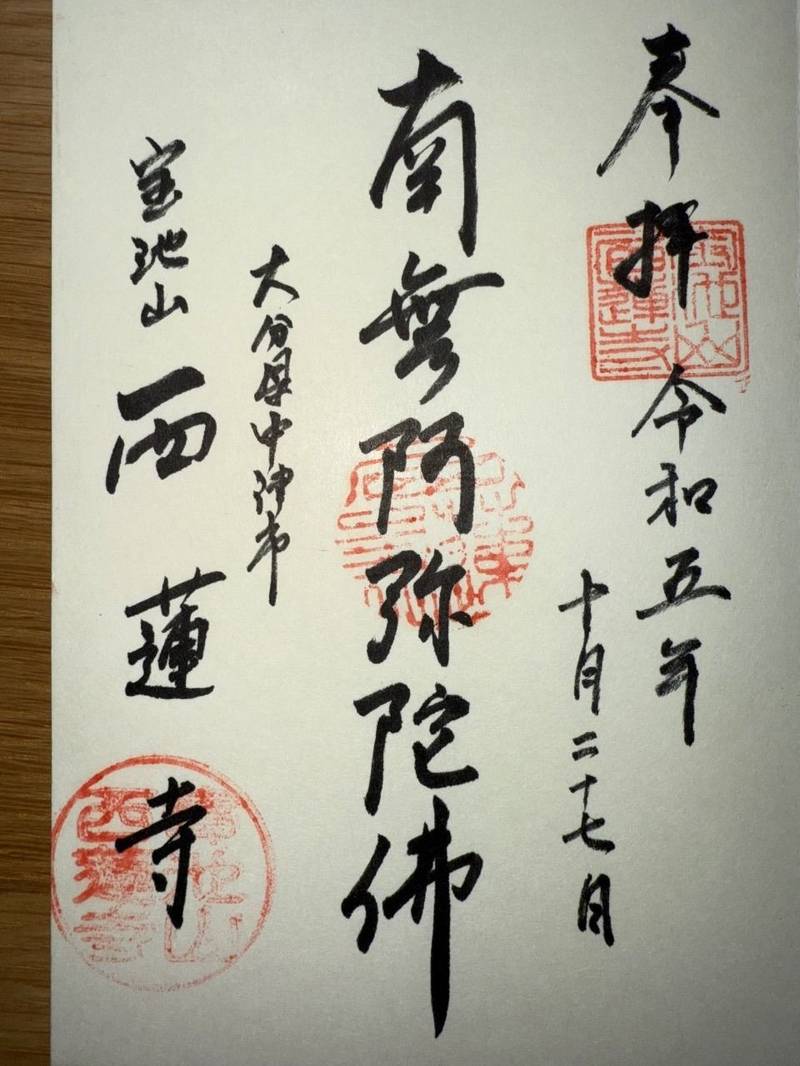 奉拝 令和五年
十月二十七日
南無阿弥陀佛
大分県中津市
宝池山 西蓮寺
宝池山
西蓮寺
宝池山
西蓮寺